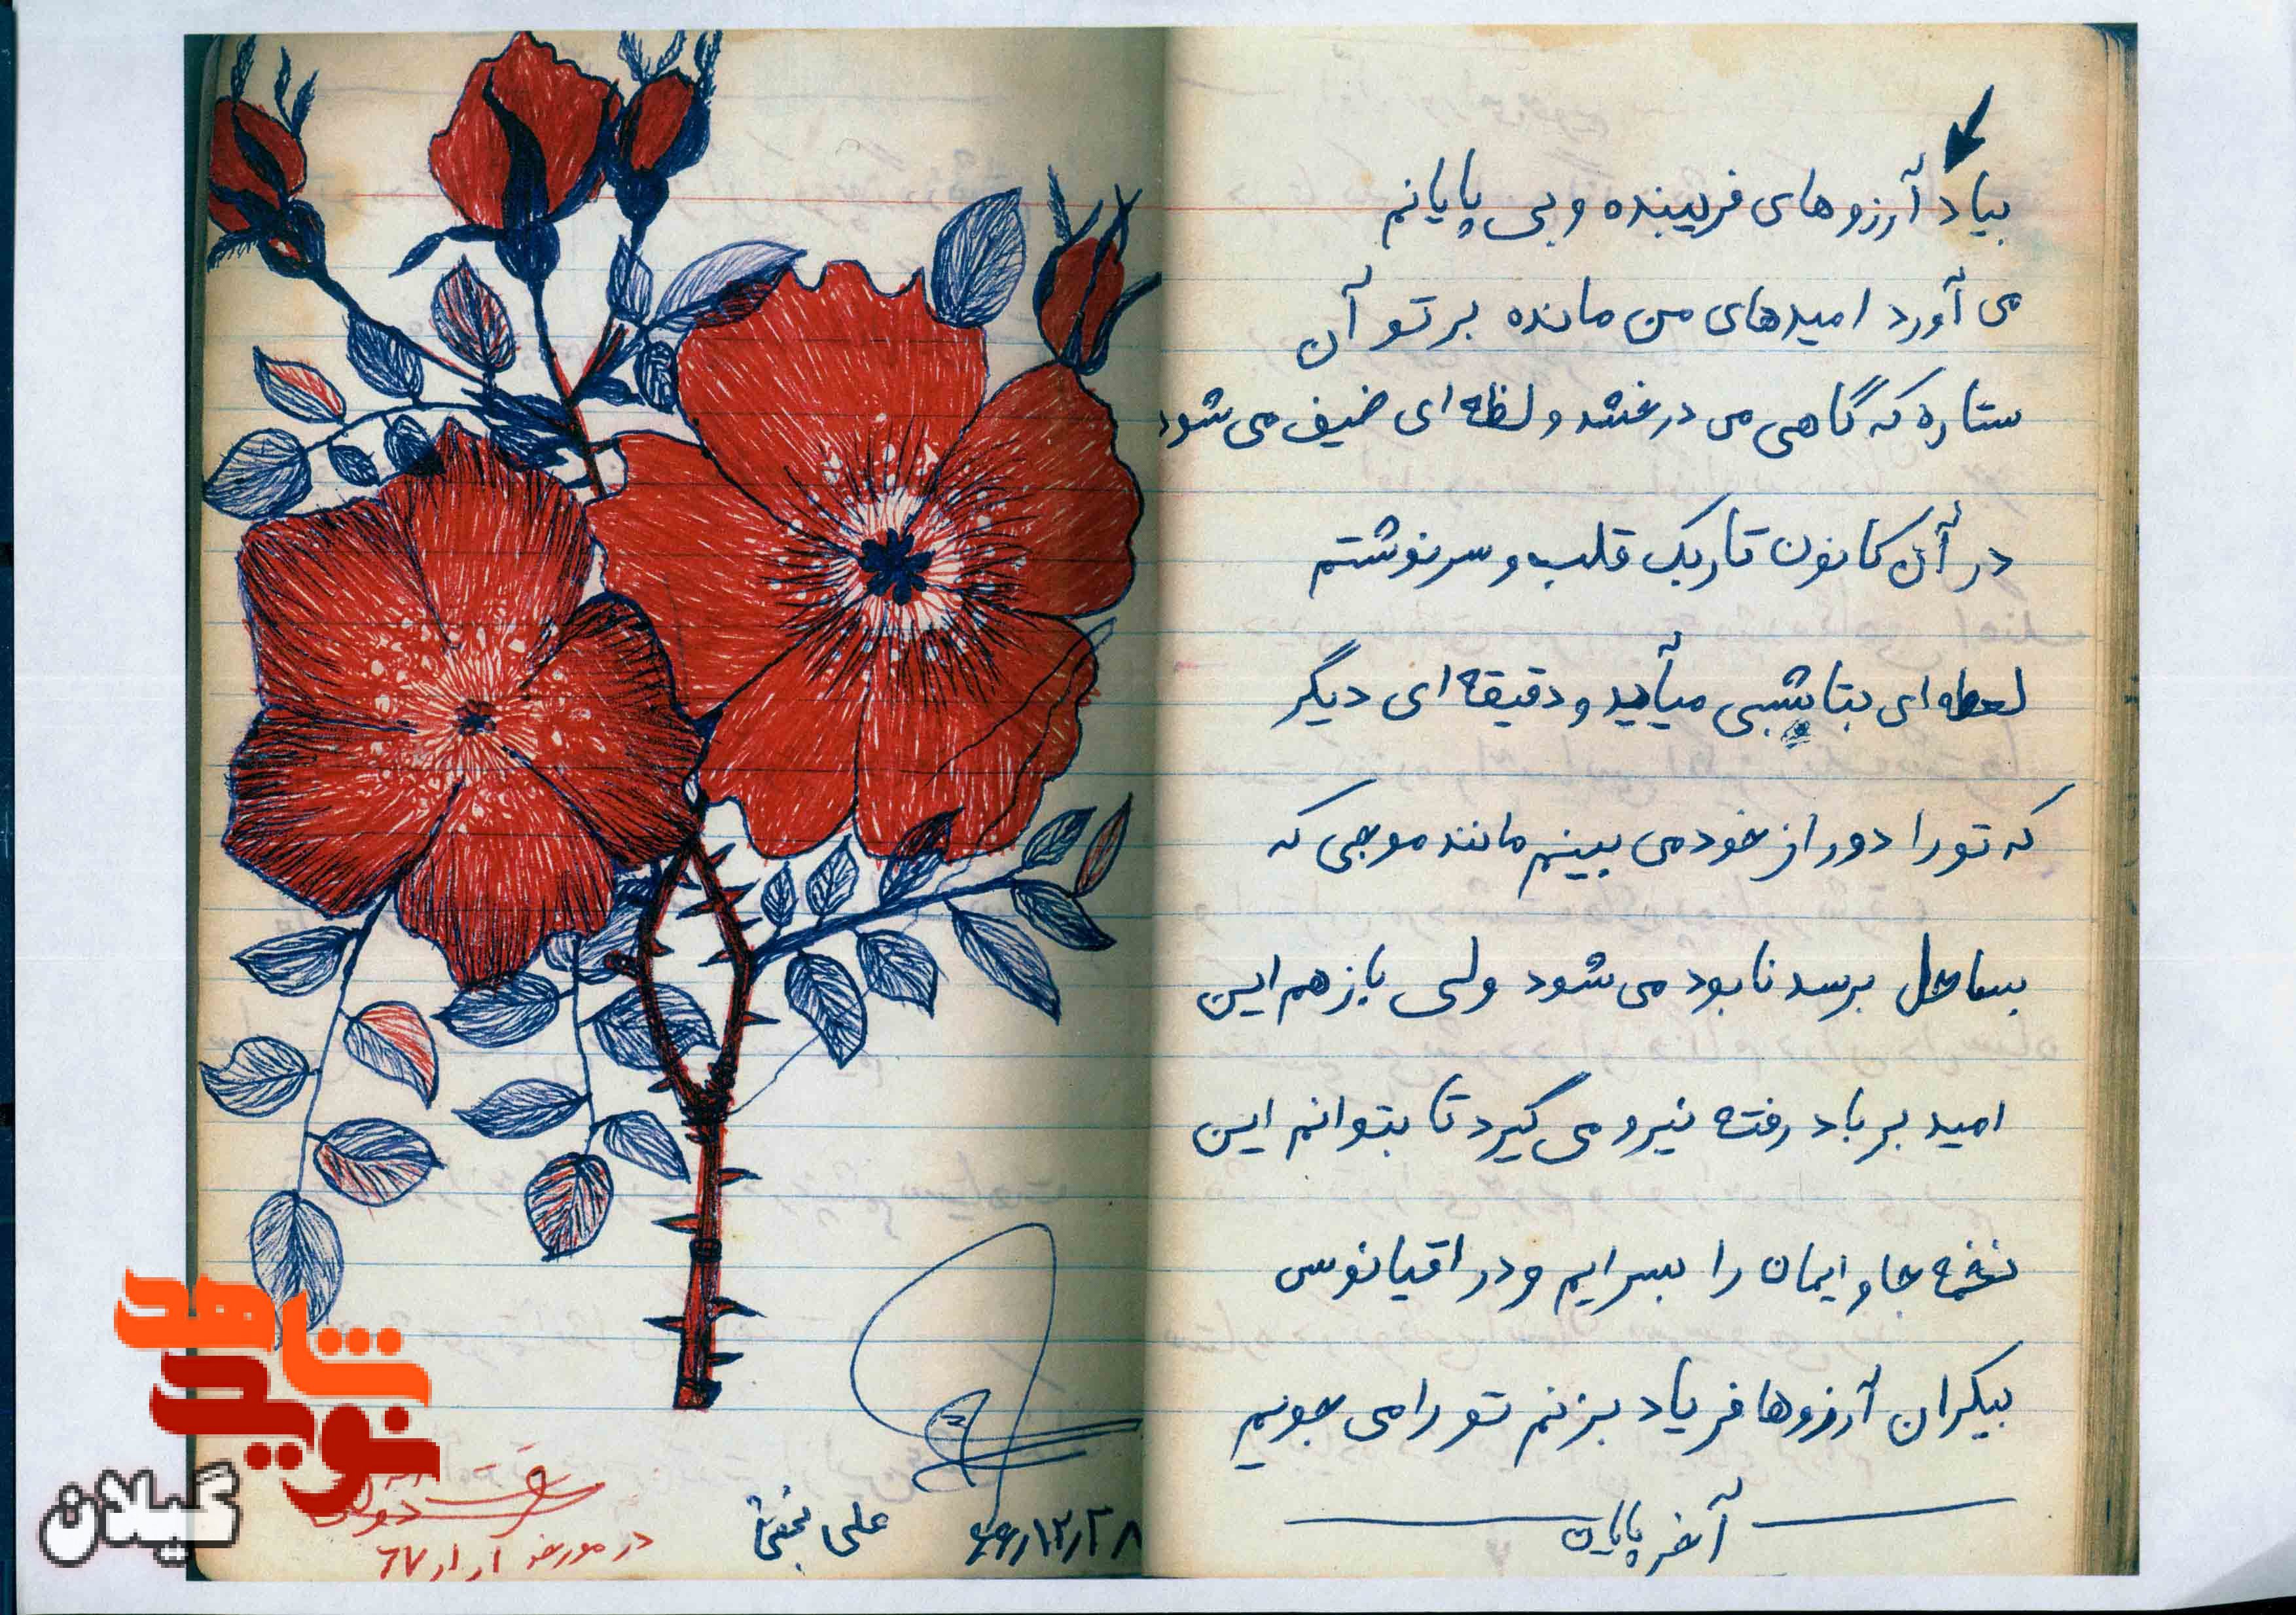 بیاد آرزوهای فریبنده و بی پایانم
می آورد امیدهای من مانده بر تو آن
ستاره که گاهی می درخشد و لظه ای ضیف می شود
در آن کانون تاریک قلب و سرنوشتم
لحظه ای بتابشی میآید و دقیقه ای دیگر
که تو را دور از خود می بینم مانند موجی که
بساحل برسد نابود می شود ولی باز هم این
امید بر باد رفته نیرو می گیرد تا بتوانم این
نغمه جاو ایمان را بسرایم و در اقیانوس
بیکران آرزوها فریاد بزنم تو را می جویم
آخر پایان
۶۶/۱۲/۲۸
علی نجفی
در مورخه ۱/۱/۶۷
شاهد
نوید
گیلان